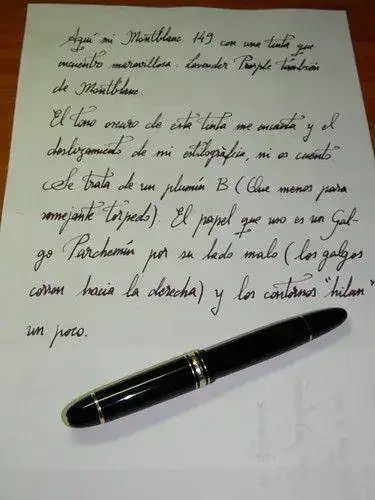 Aquí mi Montblanc 149 con una tinta que
encuentro maravillosa. Lavender Purple también
de Montblanc.
El tono oscuro de esta tinta me encanta y el
deslizamiento de mi estilográfica, ni os cuento
Se trata de un plumín B (Que menos para
semejante torpedo). El papel que uso es un Gal-
go Parchemin por su lado malo (los galgos
corren hacia la derecha) y los contornos "hilan"
un poco.